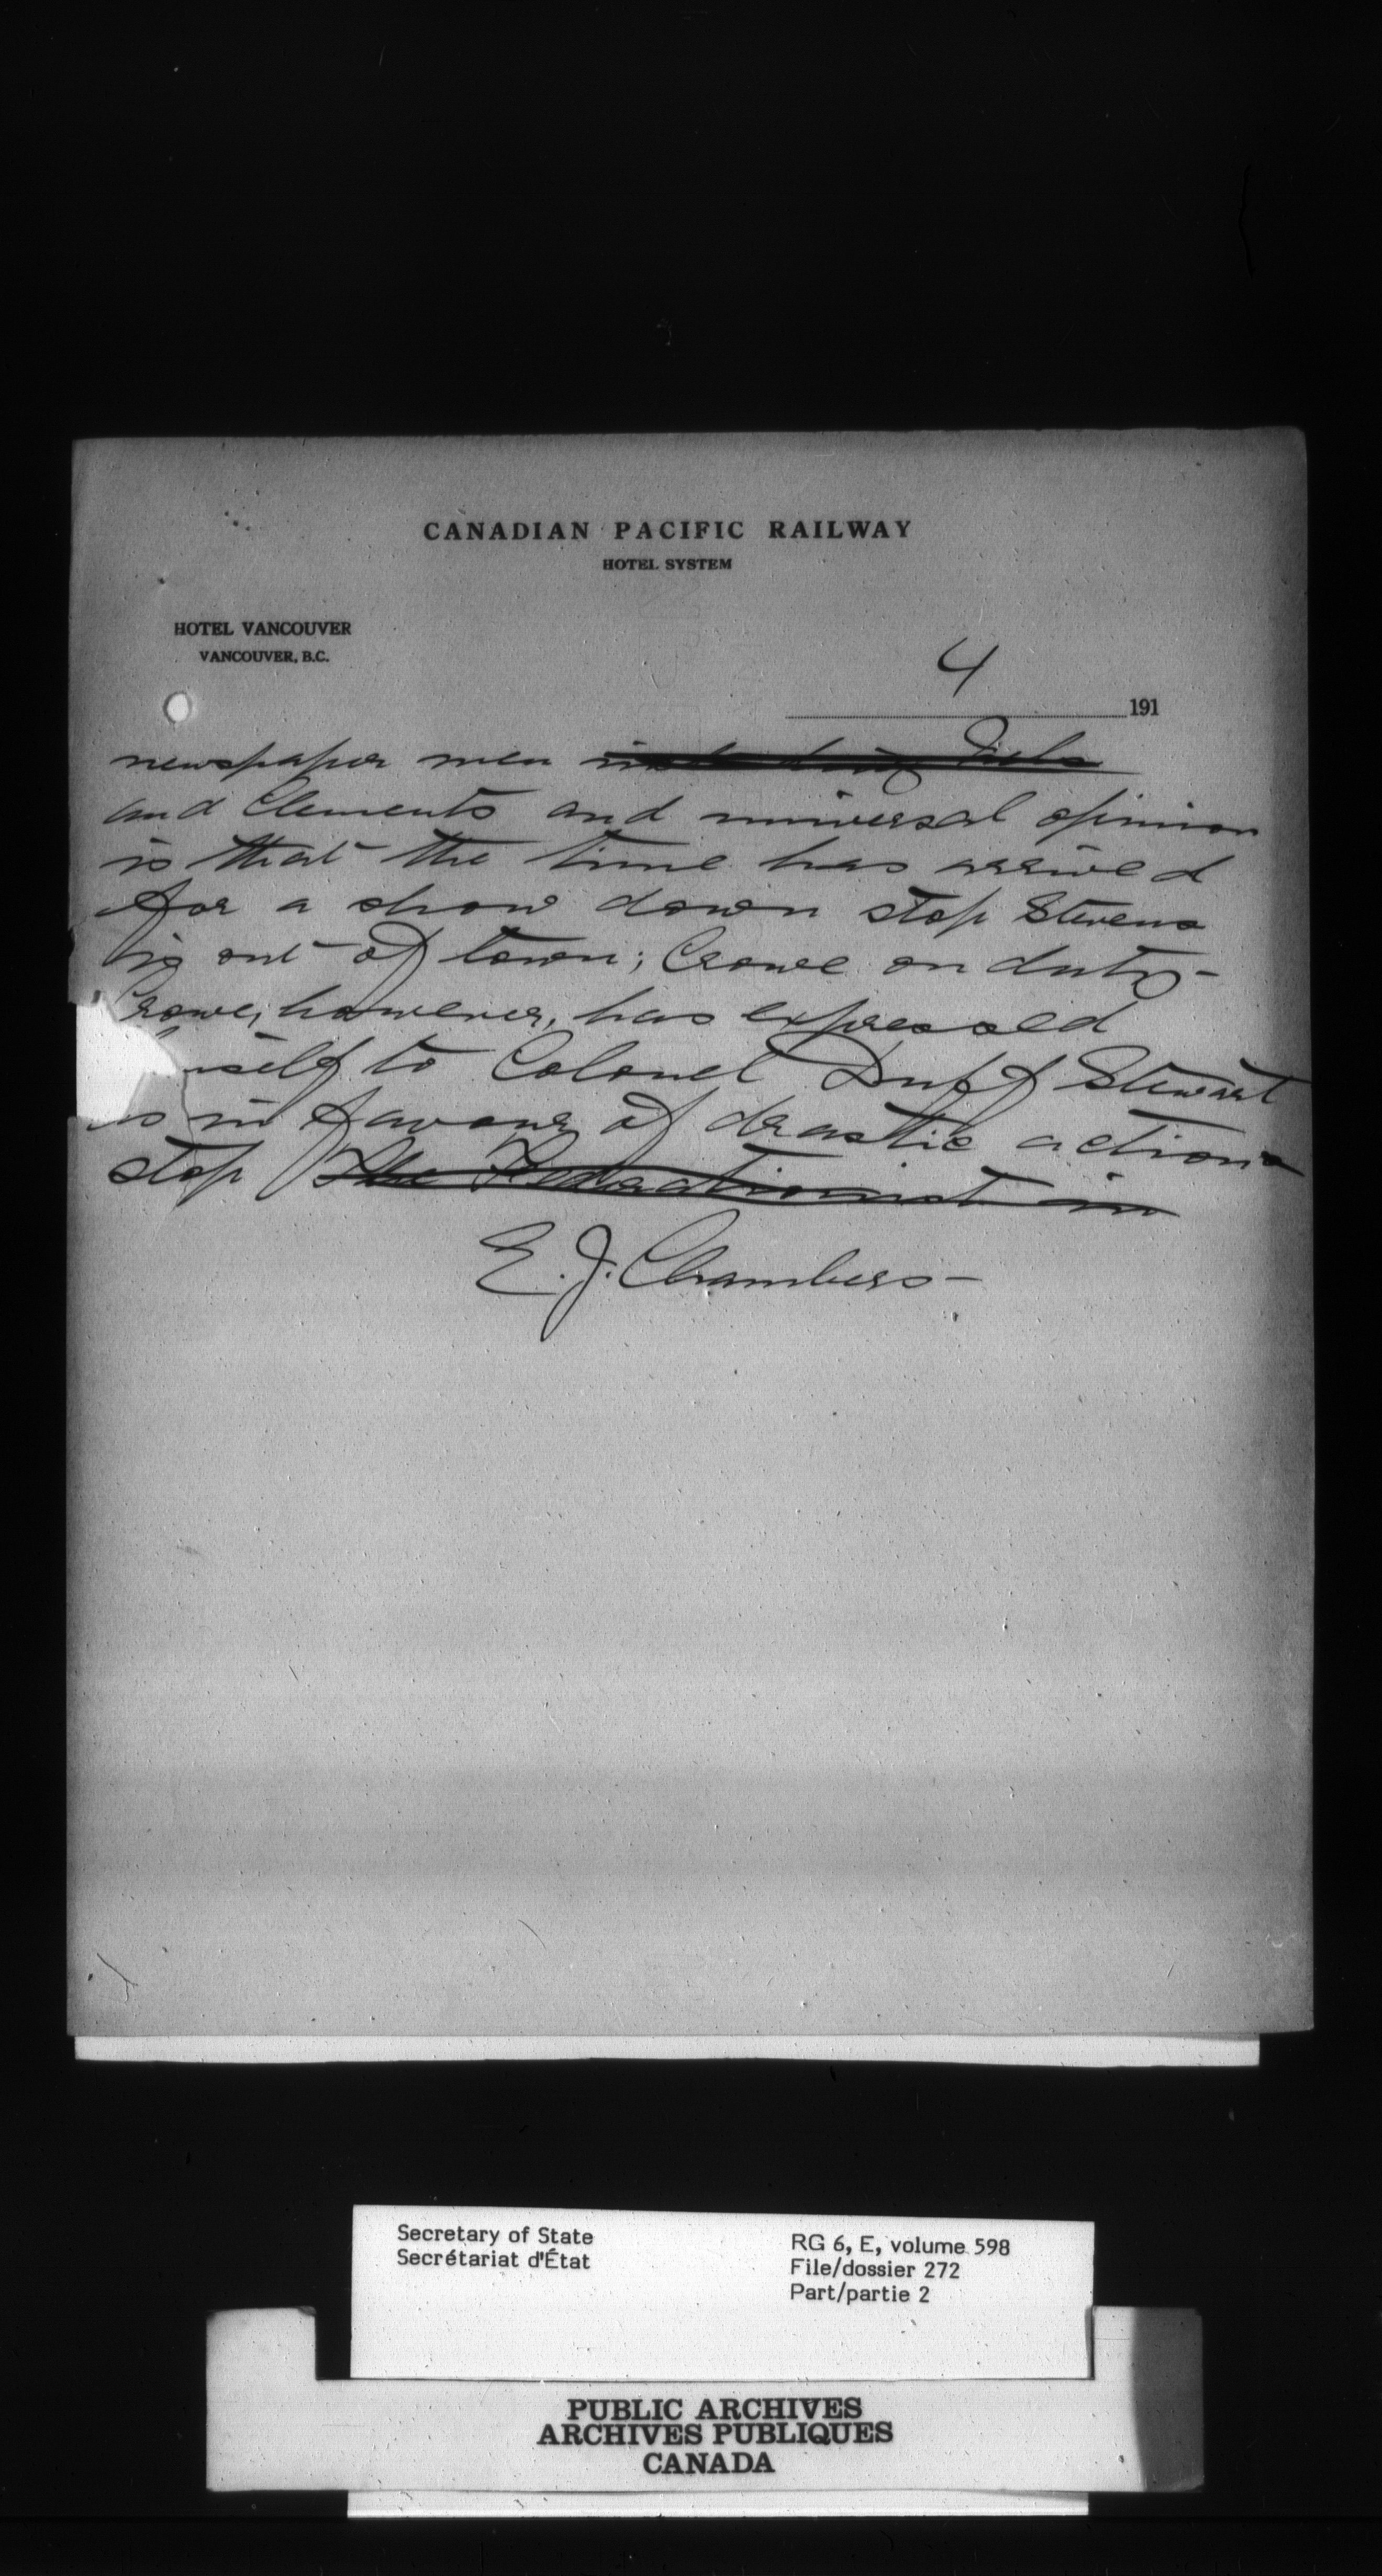 CANADIAN PACIFIC RAILWAY
HOTEL SYSTEM
HOTEL VANCOUVER
VANCOUVER, B.C.
4
191
newspaper men
and Clements and universal opinion
is that the time has arrived
for a show down stop Stevens
is out of town; Crowe on duty -
Crowe, however, has expressed
mself to Colonel Duff Stewart
as in favour of drastic action
stop The Federationist in
E. J. Chambers -
Secretary of State
Secrétariat d'État
RG 6, E, volume 598
File/dossier 272
Part/partie 2
PUBLIC ARCHIVES
ARCHIVES PUBLIQUES
CANADA